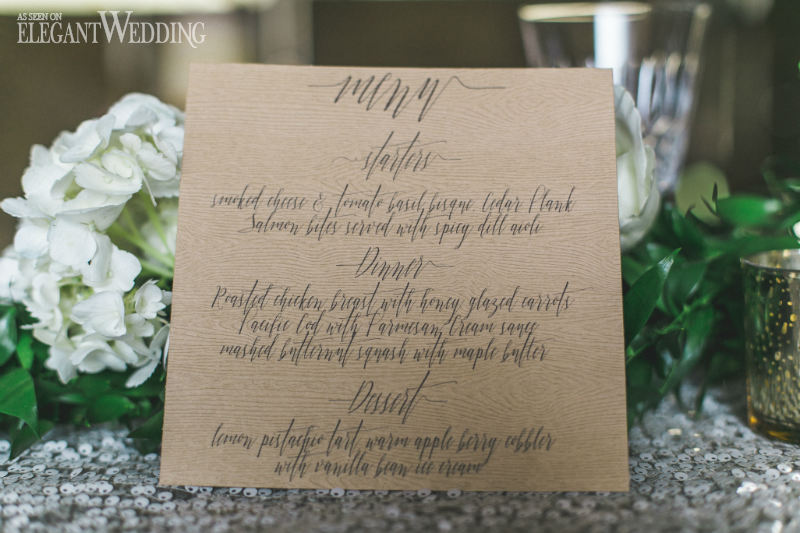 AS SEEN ON
ELEGANTWEDDING
menu
starters
smoked cheese & tomato basil bisque, Cedar Plank
Salmon bites served with spicy dill aioli
Dinner
Roasted chicken breast with honey glazed carrots
Pacific Cod with Parmesan Cream sauce
mashed butternut squash with maple butter
Dessert
lemon pistachio tart, warm apple berry cobbler
with vanilla bean ice cream